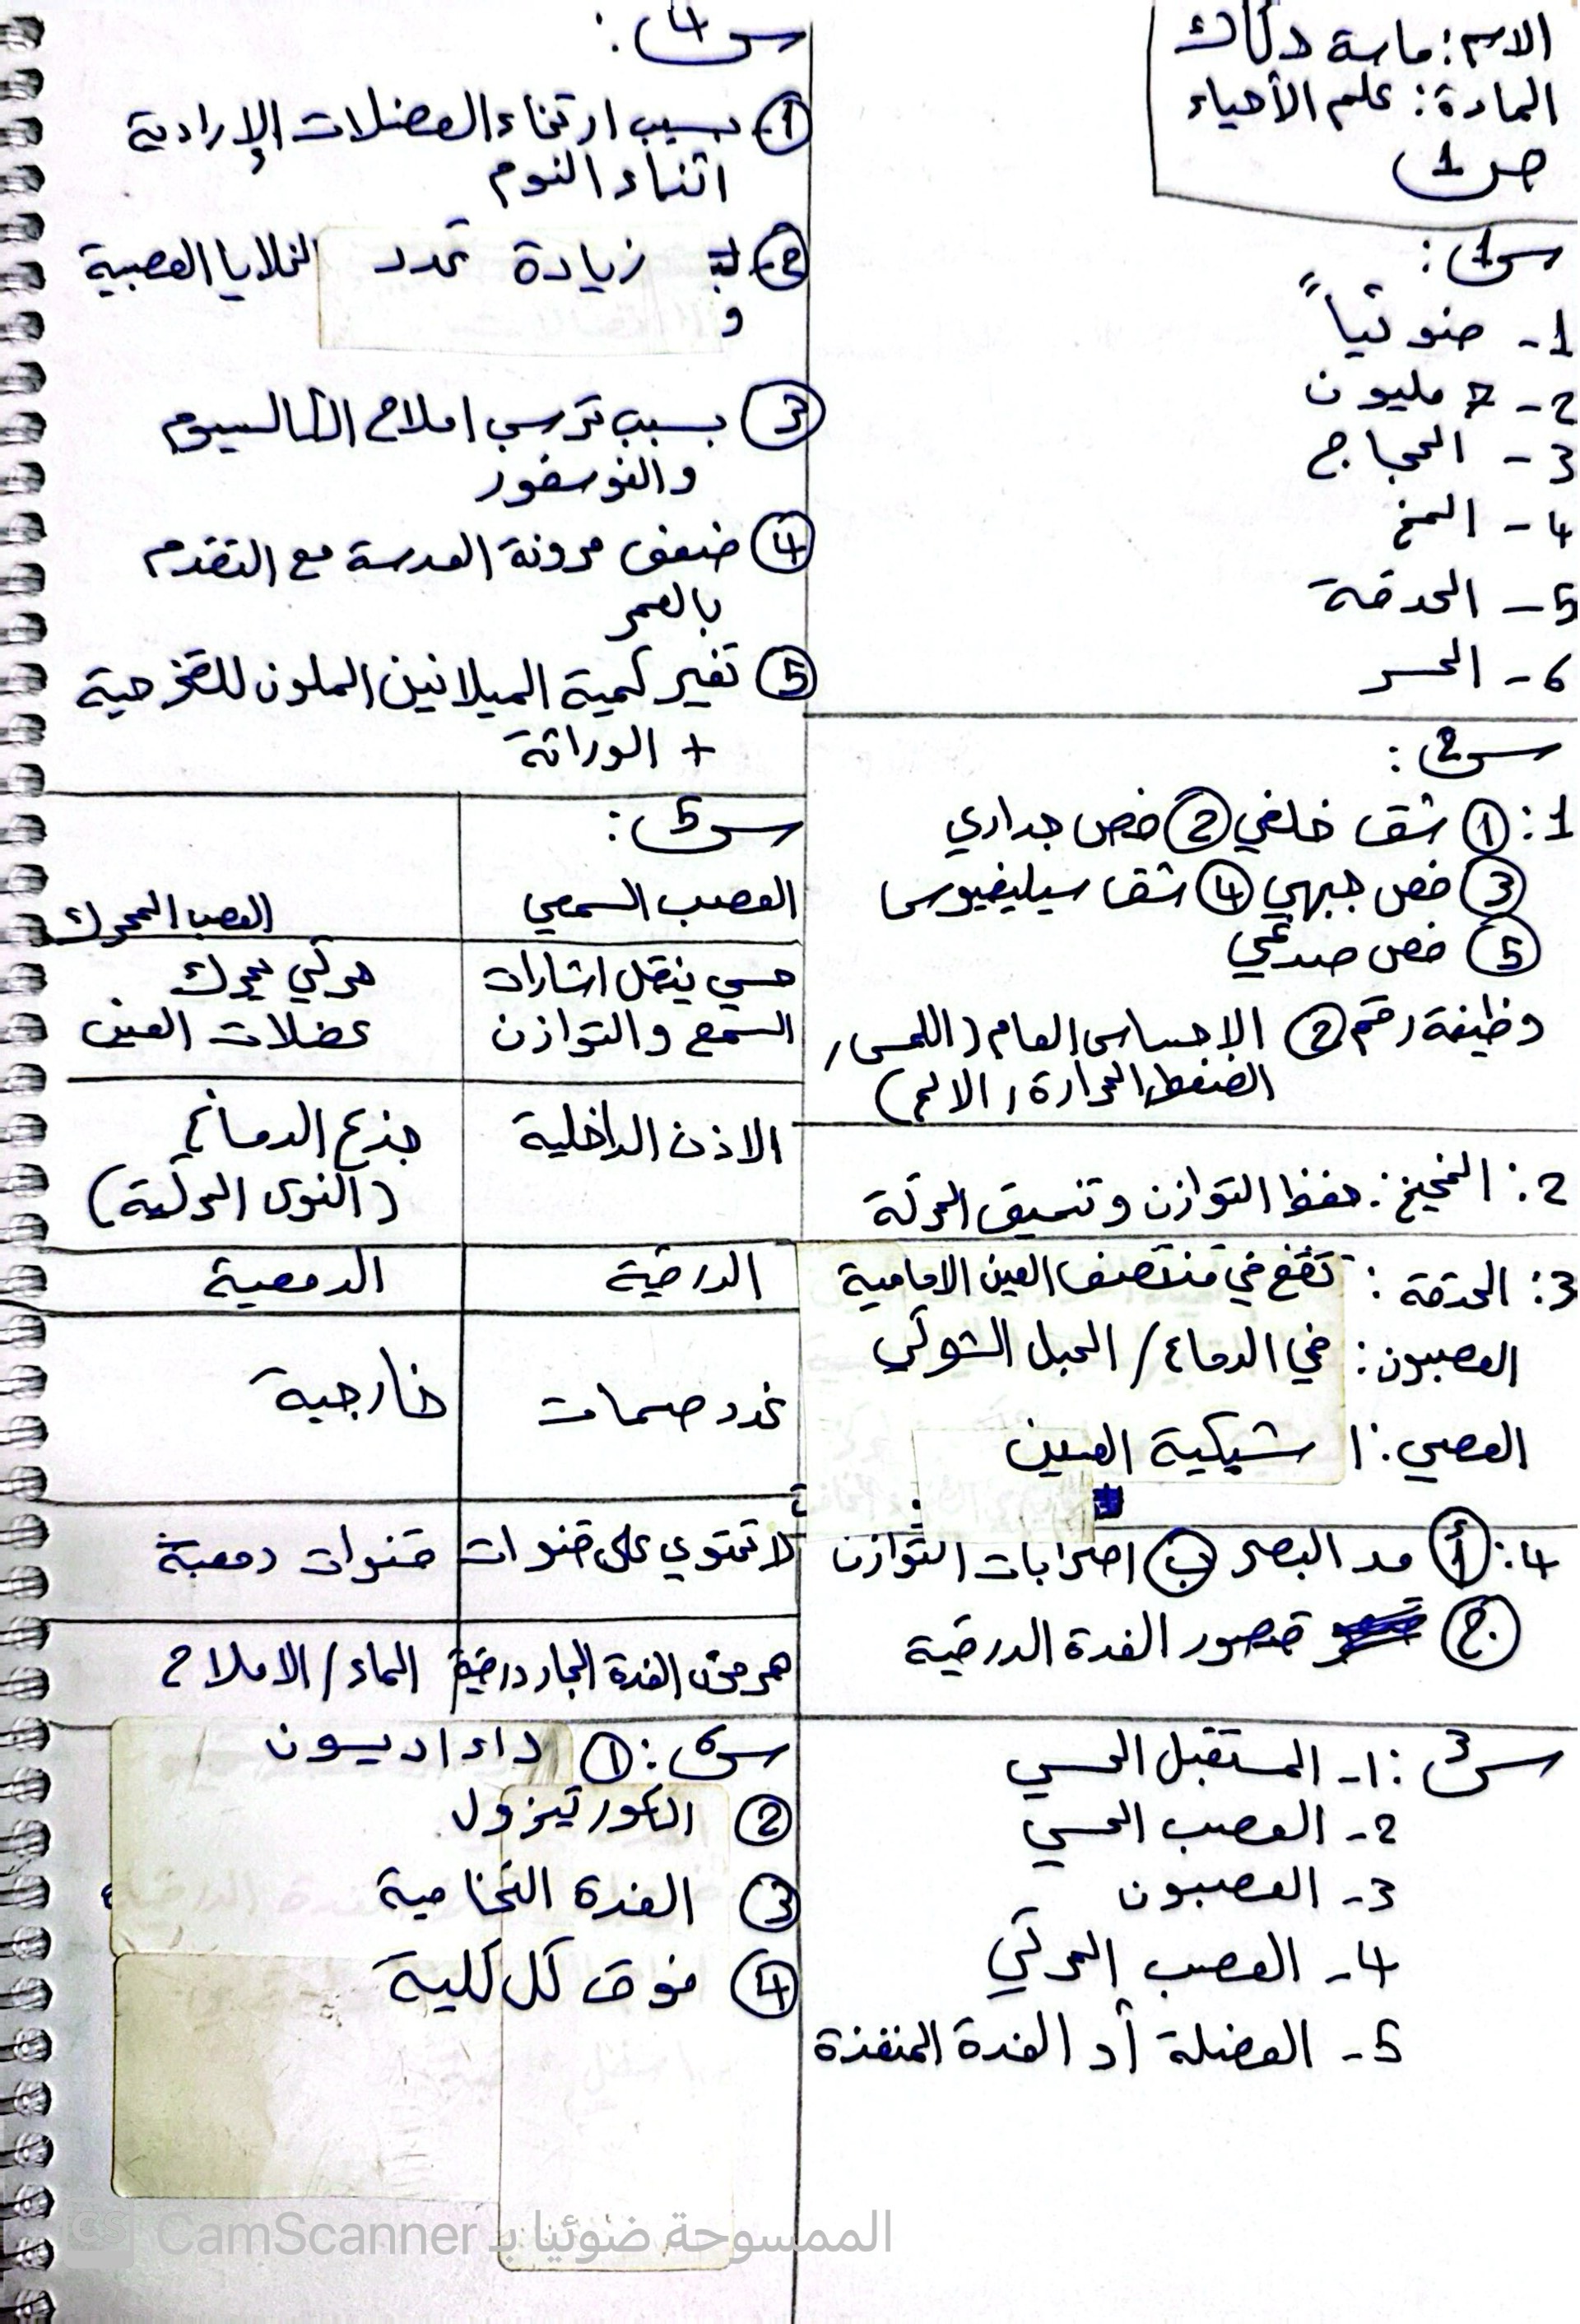 الاسم: ماسة دكاك
المادة: علم الأحياء
ص 1
س1:
1- ضوئياً
2- 7 مليون
3- الحجاج
4- المخ
5- الحدقة
6- الحسر
س2:
1: ① شق خلفي ② فص جداري
③ فص جبهي ④ شق سيليفيوس
⑤ فص صدغي
وظيفة رقم ② الاحساس العام (اللمس,
الضغط, الحرارة, الالم)
2: المخيخ: حفظ التوازن وتنسيق الحركة
3: الحدقة: تقع في منتصف العين الامامية
العصبون: في الدماغ/ الحبل الشوكي
العصي: شبكية العين
4: أ مد البصر ب اضرابات التوازن
ج قصور الغدة الدرقية
س3: 1- المستقبل الحسي
2- العصب الحسي
3- العصبون
4- العصب الحركي
5- العضلة أو الغدة المنفذة
س4:
① بسبب ارتخاء العضلات الإرادية
اثناء النوم
② زيادة تمدد الخلايا العصبية
و
③ بسبب ترسب املاح الكالسيوم
والفوسفور
④ ضعف مرونة العدسة مع التقدم
بالعمر
⑤ تغير كمية الميلانين الملون للقزحية
+ الوراثة
س5:
العصب السمعي العصب المحرك
حسي ينقل اشارات حركي يحرك
السمع والتوازن عضلات العين
الاذن الداخلية جذع الدماغ
(النوى الحركية)
الدرقية الدمعية
غدد صمات خارجية
لا تحتوي على قنوات قنوات دمعية
هرمون الغدة الجار درقية الماء/الاملاح
س6: ① داء اديسون
② الكورتيزول
③ الغدة النخامية
④ فوق كل كلية
الممسوحة ضوئيا بـ CamScanner
CS